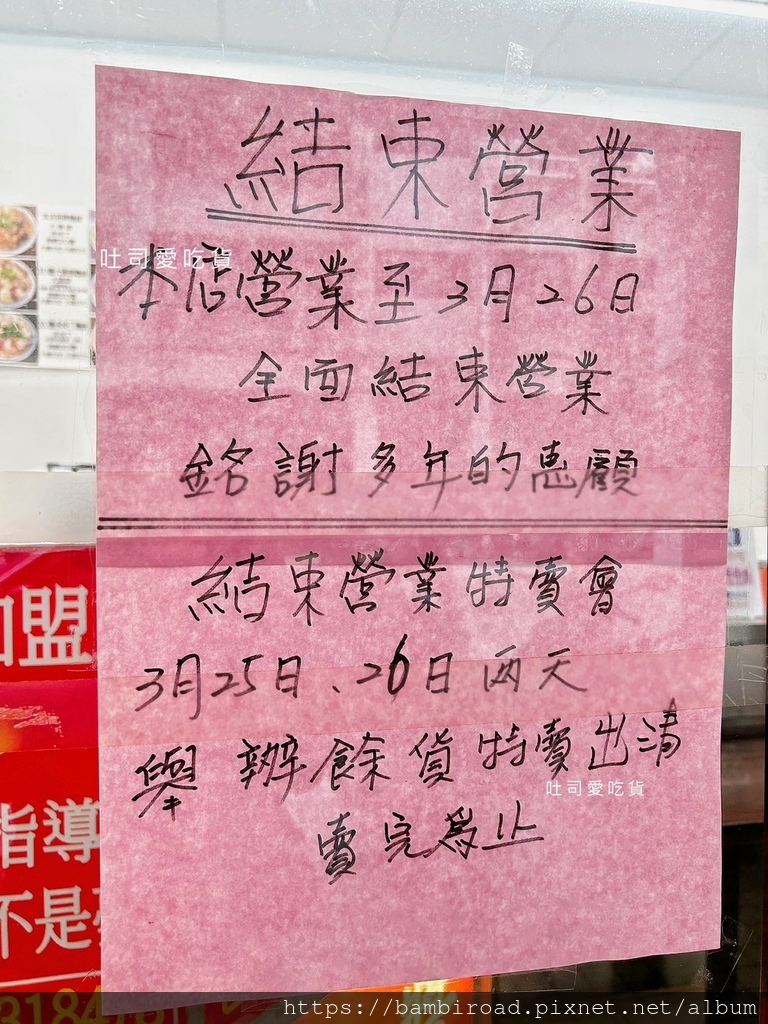 結束營業
吐司愛吃貨
本店營業至3月26日
全面結束營業
銘謝多年的惠顧
結束營業特賣會
3月25日、26日兩天
舉辦餘貨特賣出清
吐司愛吃貨
賣完為止
加盟
指導
不是
https://bambiroad.pixnet.net/album